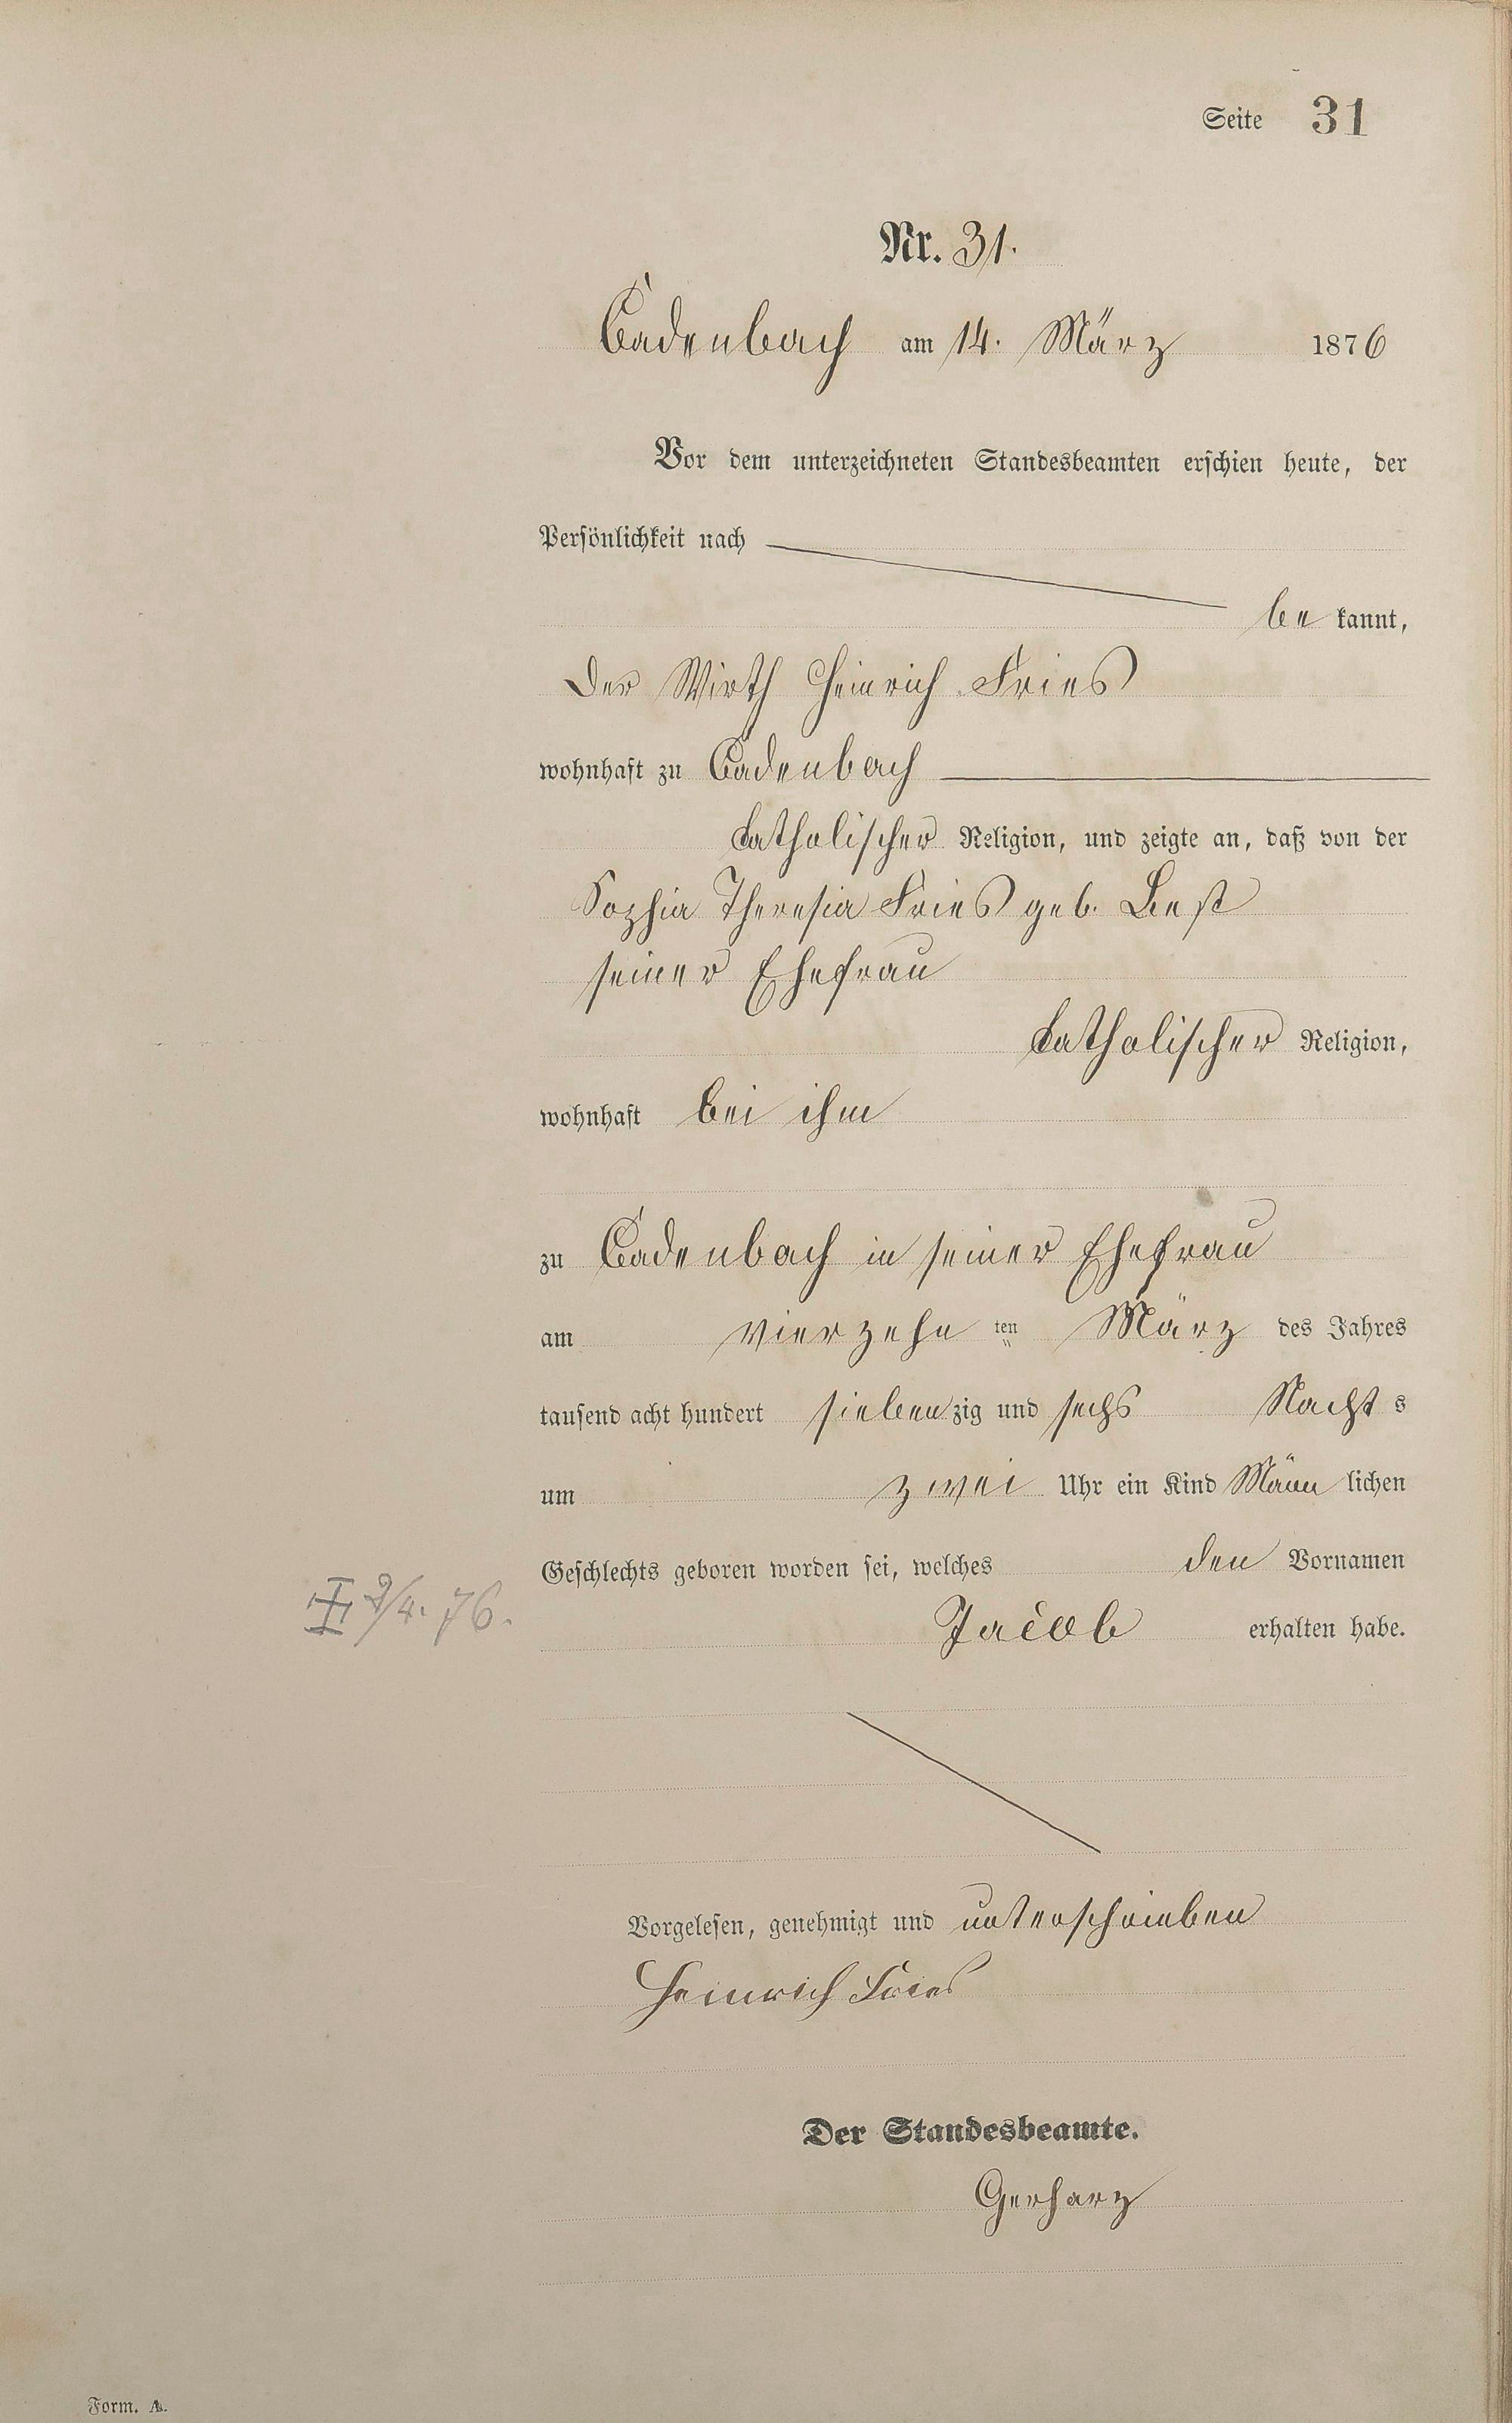 Seite 31
Nr. 31.
Cadenbach am 14. März 1876
Vor dem unterzeichneten Standesbeamten erschien heute, der
Persönlichkeit nach
be kannt,
der Wirth Heinrich Fries
wohnhaft zu Cadenbach
katholischer Religion, und zeigte an, daß von der
Sophia Theresia Fries geb. Best
seiner Ehefrau
katholischer Religion,
wohnhaft bei ihm
zu Cadenbach in seiner Ehefrau
am vierzehn ten März des Jahres
tausend acht hundert sieben zig und sechs Nacht s
um zwei Uhr ein Kind Männ lichen
Geschlechts geboren worden sei, welches den Vornamen
9/4. 76.
Jacob erhalten habe.
Vorgelesen, genehmigt und unterschrieben
Heinrich Fries
Der Standesbeamte.
Gerharz
Form. A.